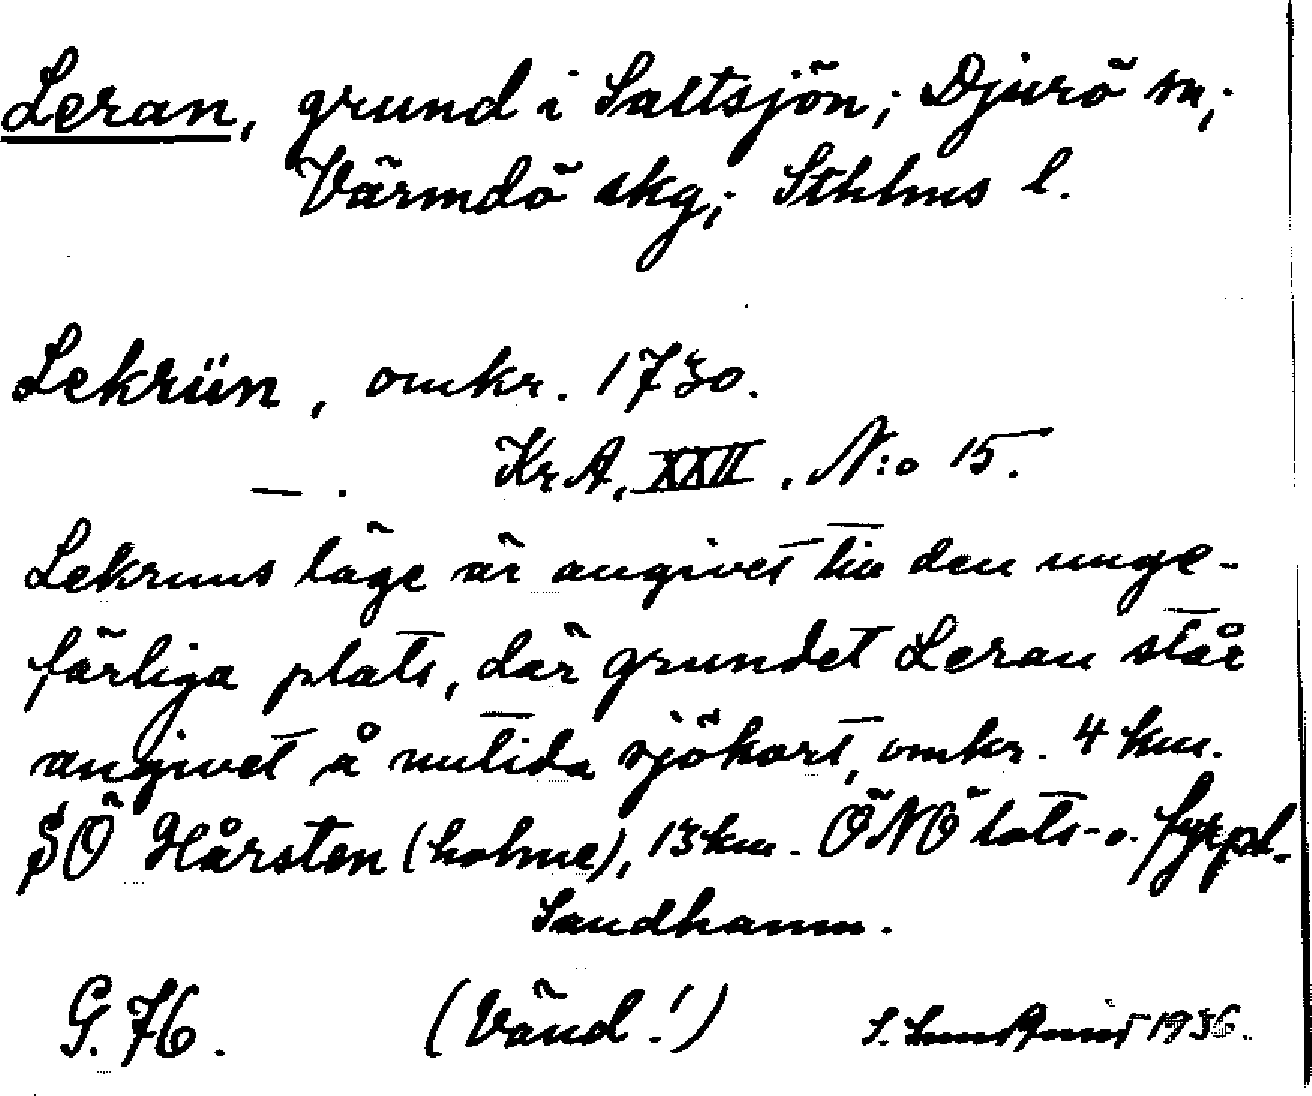 Leran, grund i Saltsjön; Djurö sn;
Värmdö skg; Sthlms l.
Lekrün, omkr. 1730.
—. Kr A, XXII, N:o 15.
Lekruns läge är angivet till den unge-
färliga plats, där grundet Leran står
angivet å nutida sjökort, omkr. 4 km.
SÖ Hårsten (holme), 13 km. ÖNÖ lots- o. fyrpl.
Sandhamn.
G. 76. (Vänd!) S. 1936.